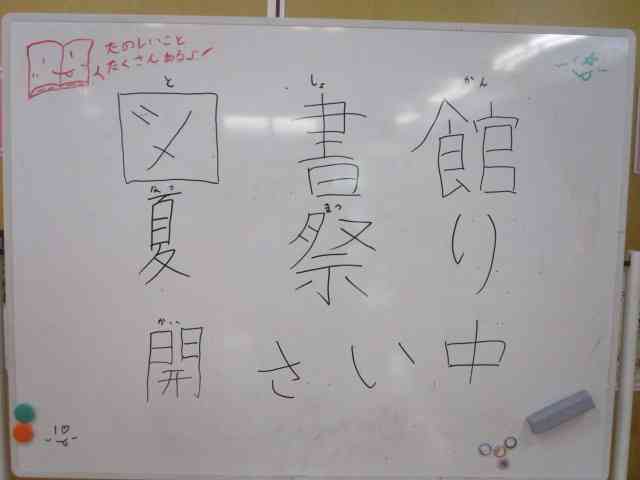 たのしいこと
たくさんあるよ！
と しょ かん
図書館
なつ まつ
夏祭り
かい
開さい中